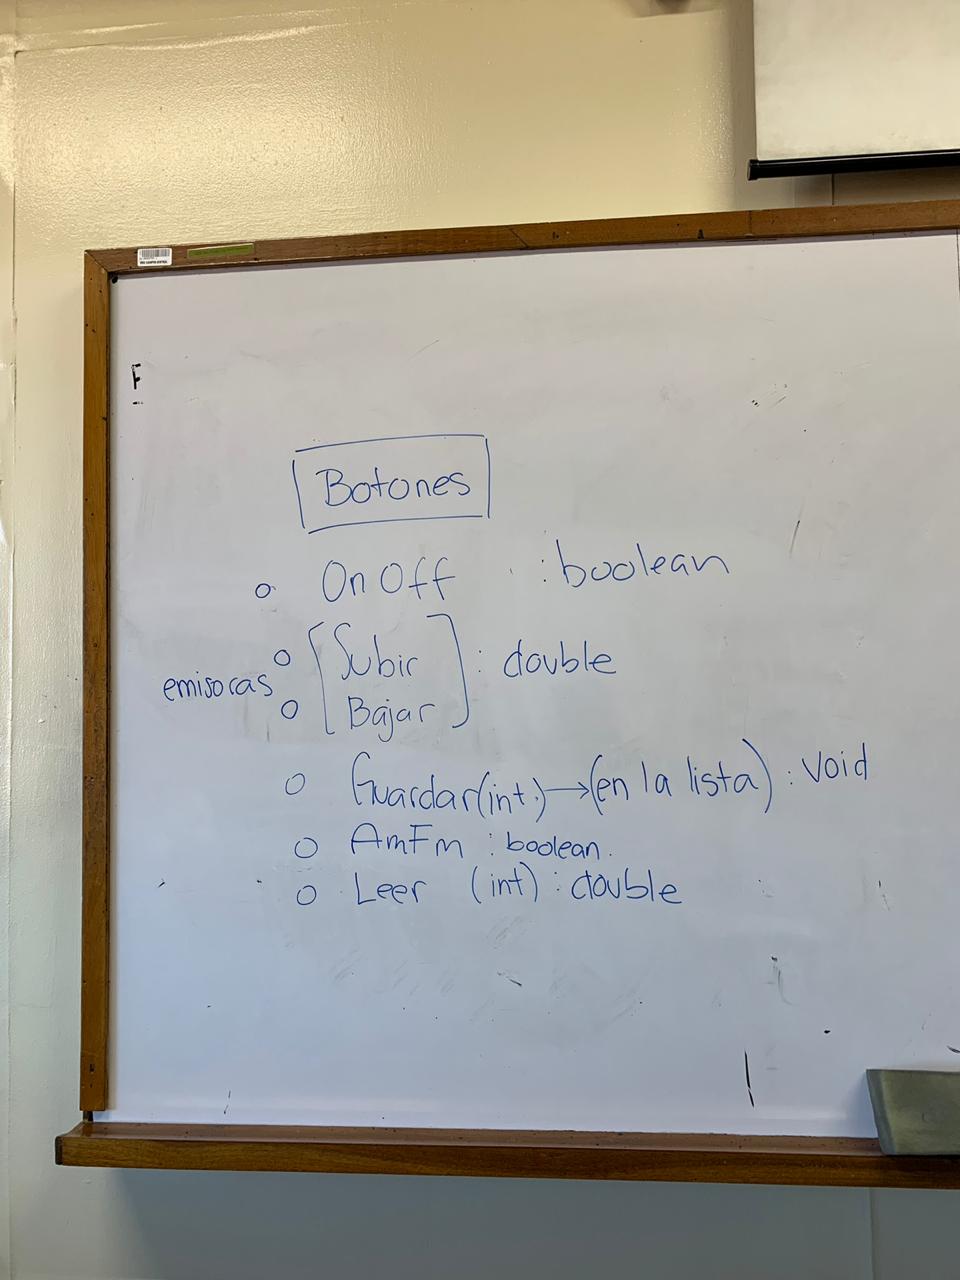 Botones
OnOff : boolean
emisoras
Subir
Bajar
: double
Guardar(int) → (en la lista) : void
AmFm : boolean.
Leer (int) : double